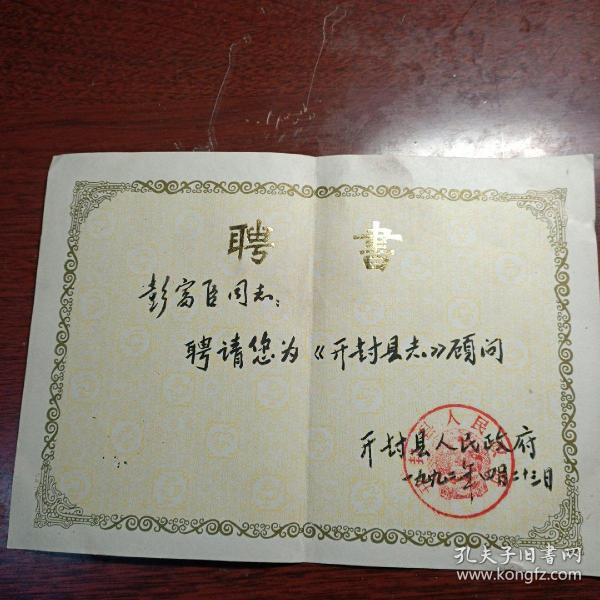 聘書
彭富臣同志：
聘请您为《开封县志》顾问
开封县人民政府
一九九二年四月二十三日
孔夫子旧书网
www.kongfz.com